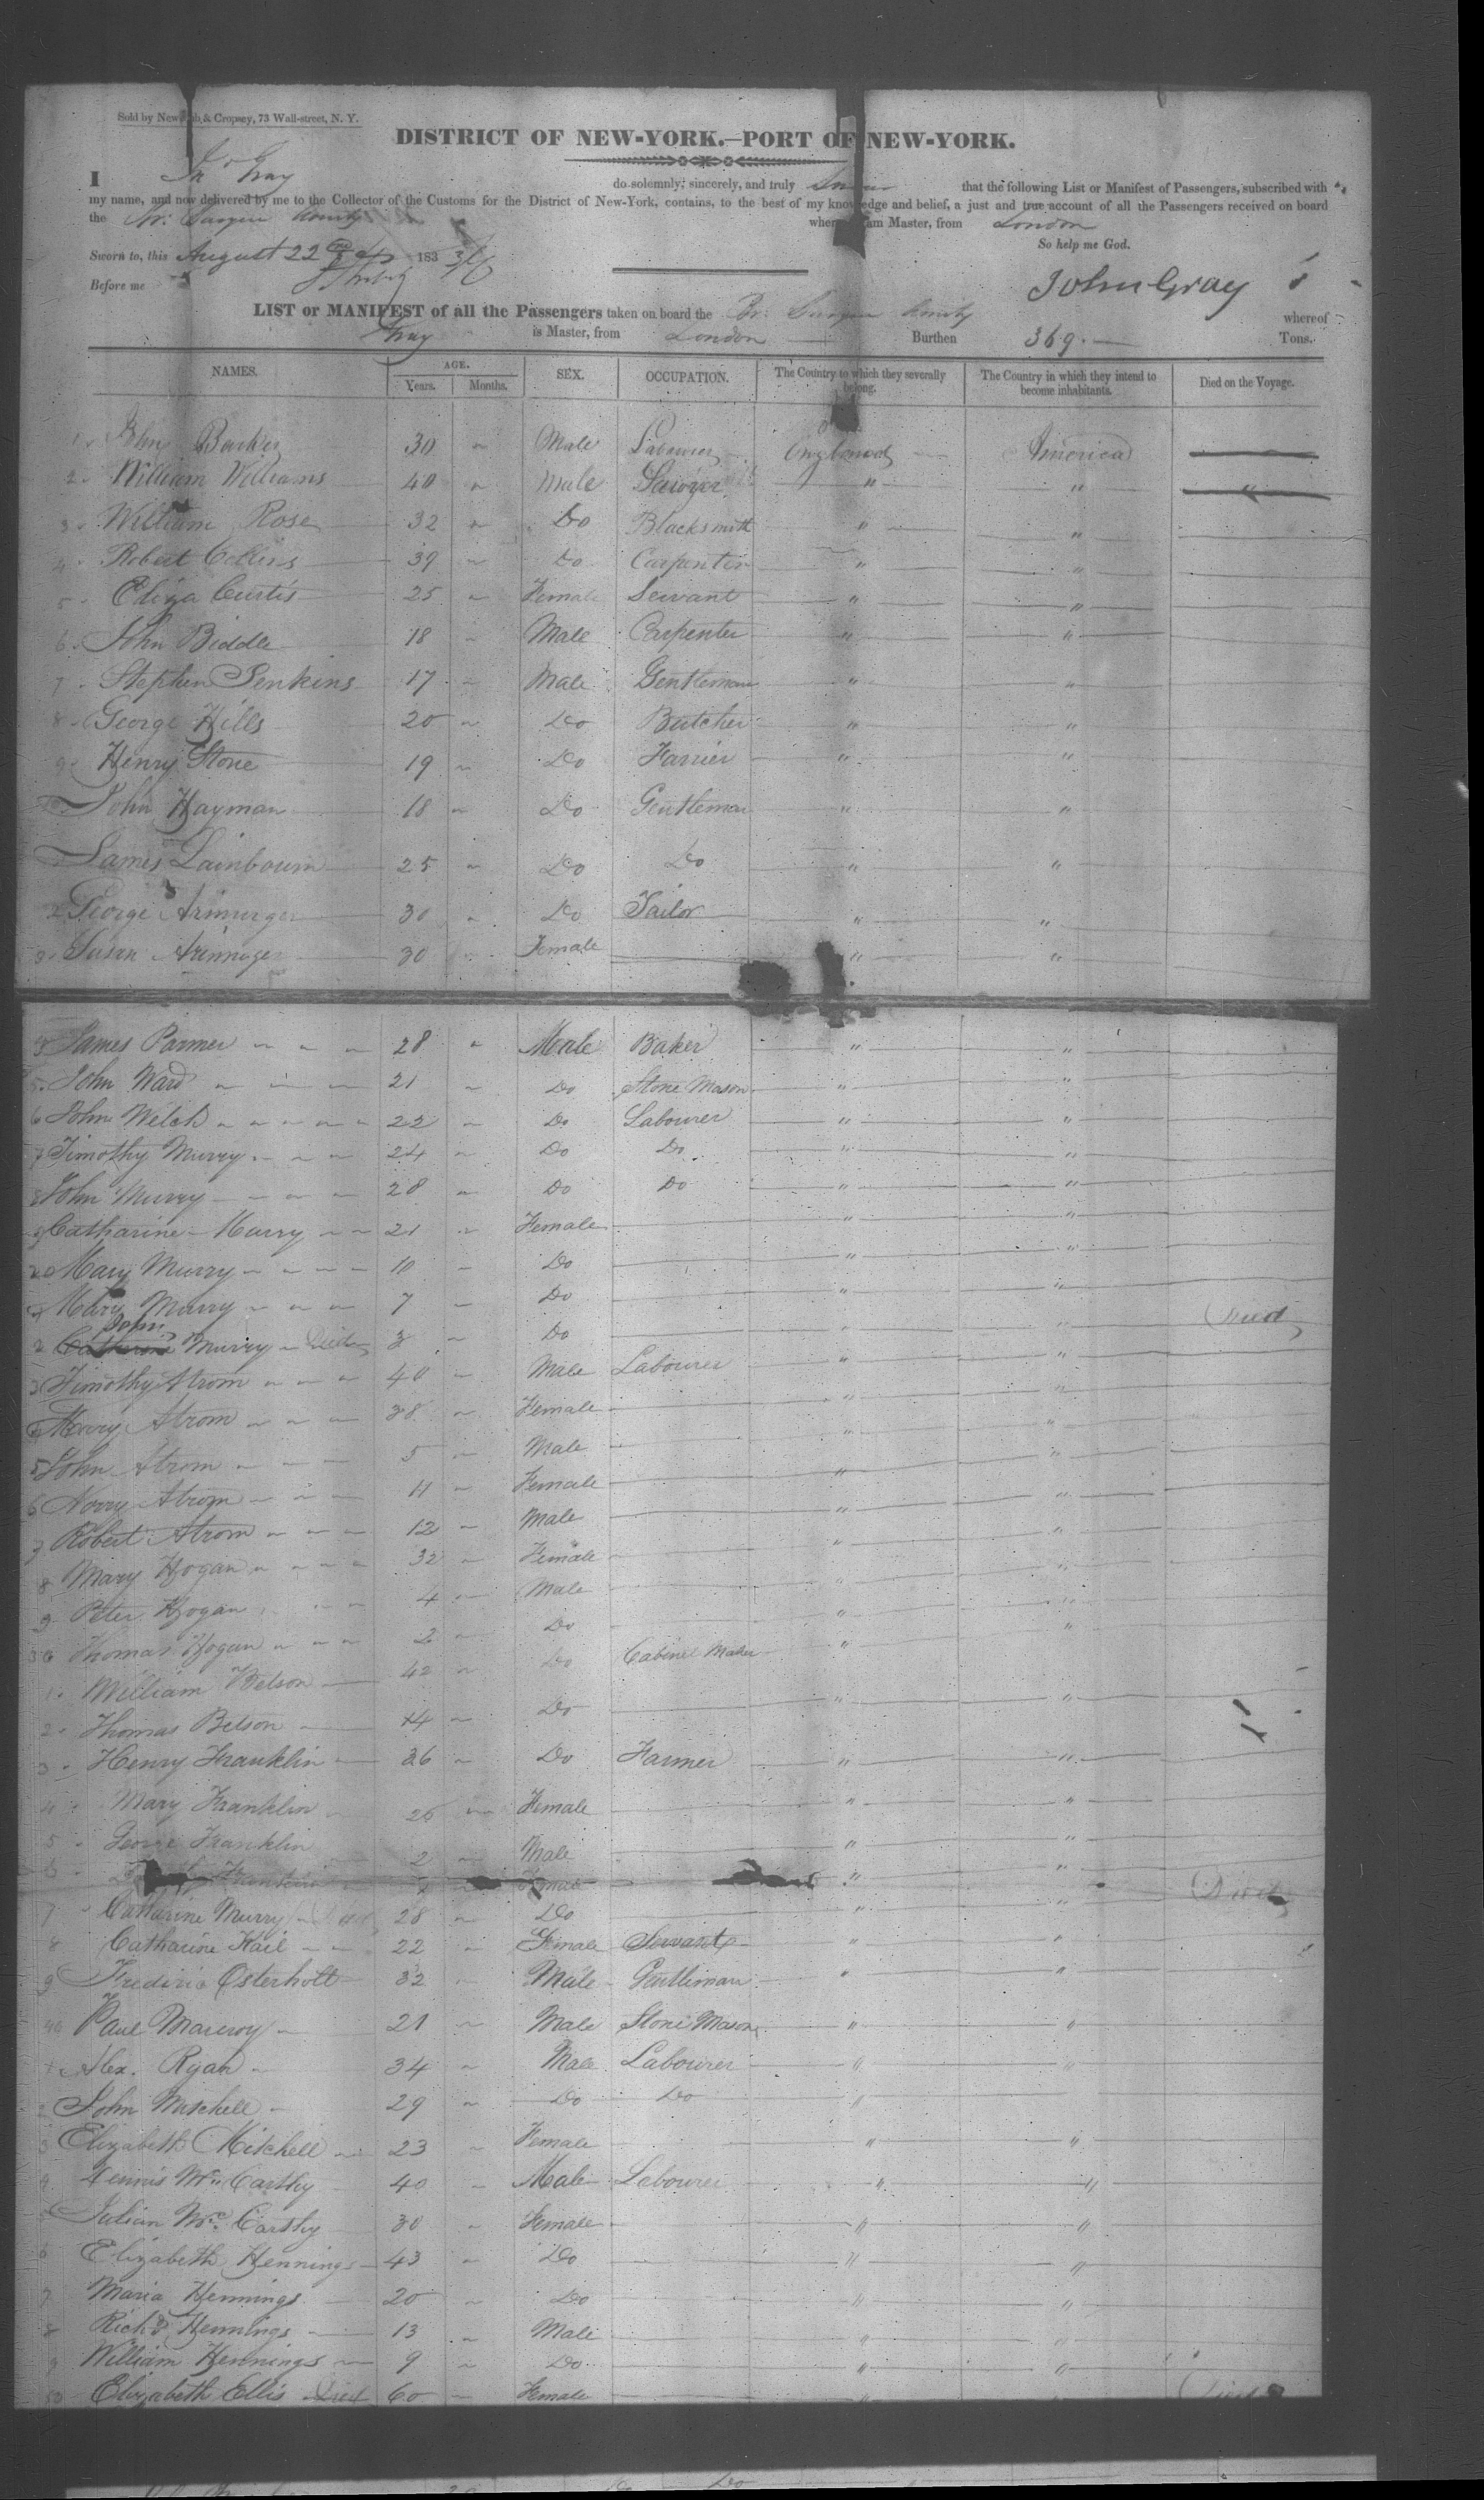 Sold by Newcomb & Cropsey, 73 Wall-street, N. Y.
DISTRICT OF NEW-YORK.—PORT OF NEW-YORK.
I Jn Gray do solemnly, sincerely, and truly Swear that the following List or Manifest of Passengers, subscribed with
my name, and now delivered by me to the Collector of the Customs for the District of New-York, contains, to the best of my knowledge and belief, a just and true account of all the Passengers received on board
the Amity whereof I am Master, from London
So help me God.
Sworn to, this August 22 183
Before me
John Gray
LIST or MANIFEST of all the Passengers taken on board the Br. Amity whereof
Gray is Master, from London Burthen 369 Tons.
NAMES. AGE. Years. Months. SEX. OCCUPATION. The Country to which they severally belong. The Country in which they intend to become inhabitants. Died on the Voyage.
1 John 30 " Male Labourer England America
2 William Williams 40 " Male Sawyer " "
3 William Rose 32 " Do Blacksmith " "
4 Robert Collins 39 " Do Carpenter " "
5 Eliza Curtis 25 " Female Servant " "
6 John Biddle 18 " Male Carpenter " "
7 Stephen Jenkins 17 " Male Gentleman " "
8 George Hills 20 " Do Butcher " "
9 Henry Stone 19 " Do Farrier " "
John Hayman 18 " Do Gentleman " "
James Lainbourn 25 " Do Do " "
2 George 30 " Do Tailor " "
3 Susan 30 Female " "
James Parmer 28 " Male Baker " "
5 John Ward 21 " Do Stone Mason " "
6 John Welch 22 " Do Labourer " "
7 Timothy Murry 24 " Do Do " "
8 John Murry 28 " Do Do " "
9 Catharine Murry 21 " Female " "
20 Mary Murry 10 " Do " "
Mary Murry 7 " Do " "
2 John Murry Died 3 " Do " " Died
3 Timothy Strom 40 " Male Labourer " "
Strom 38 " Female " "
5 John Strom 5 " Male " "
6 Norry Strom 11 " Female " "
7 Robert Strom 12 " Male " "
8 Mary Hogan 32 " Female " "
9 Peter Hogan 4 " Male " "
30 Thomas Hogan 2 " Do " "
1 William Belson 42 " Do Cabinet Maker " "
2 Thomas Belson 14 " Do " "
3 Henry Franklin 36 " Do Farmer " "
4 Mary Franklin 26 " Female " "
5 George Franklin 2 " Male " "
6 Franklin Female " "
7 Catharine Murry Died 28 " Do " " Died
8 Catharine Hail 22 " Female Servant " "
9 Frederic Osterholt 32 " Male Gentleman " "
40 Paul 21 " Male Stone Mason " "
1 Alex. Ryan 34 " Male Labourer " "
2 John Mitchell 29 " Do Do "
3 Elizabeth Mitchell 23 " Female " "
4 Dennis Mc Carthy 40 " Male Labourer " "
5 Julian Mc Carthy 30 " Female " "
6 Elizabeth Hennings 43 " Do " "
7 Maria Hennings 20 " Do " "
8 Richd Hennings 13 " Male " "
9 William Hennings 9 " Do " "
50 Elizabeth Ellis Died 60 " Female " " Died